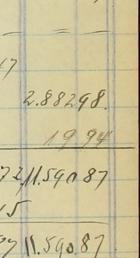 17
2.88298.
1994
72 11.590.87
15
97 11.590.87